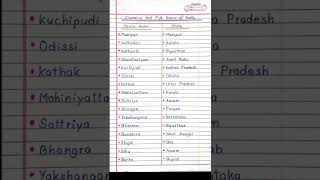 Classical And Folk Dances of India
Dance Name State
• Manipuri • Manipur
• Kathakali • Kerala
• Rajasthan
• Tamil Nadu
• Kuchipudi • Pradesh
• Odissi • Odisha
• Kathak • Uttar Pradesh
• Mohiniyattam • Kerala
• Sattriya • Assam
• Bhangra • Punjab
• Yakshangana • Karnataka
• Ghoomar • Rajasthan
• Gambhira • West Bengal
• Goa
• Bihu • Assam
• Garba • Gujrat
• kuchipudi
• Odissi
• kathak
• Mohiniyatta
• Sattriya
• Bhangra
• Yakshangana
Pradesh
Pradesh
taka